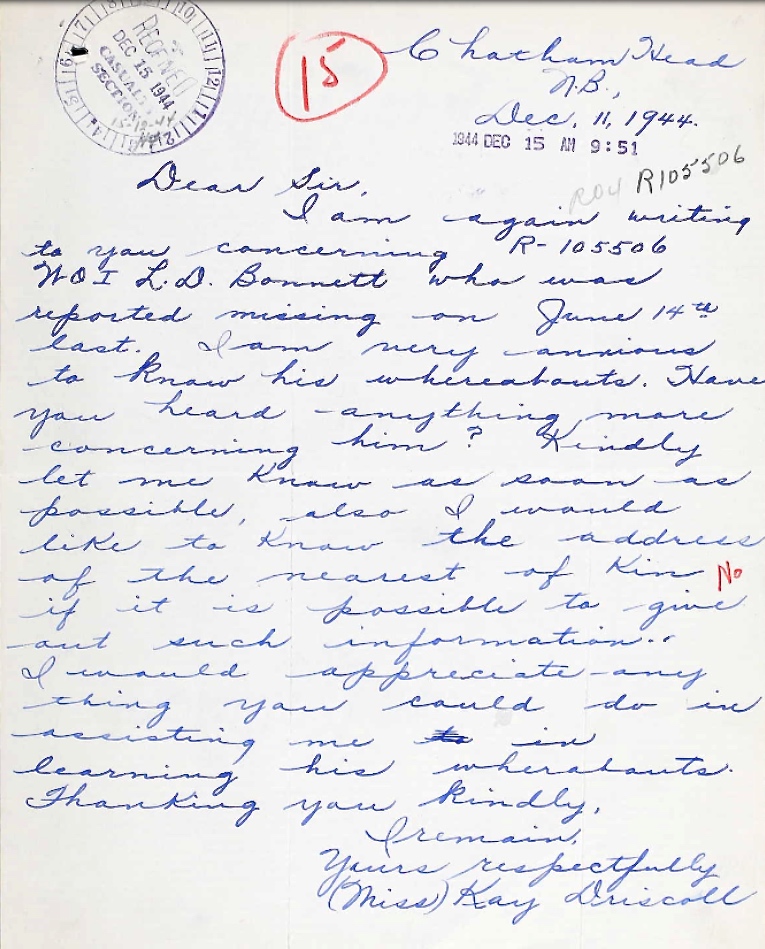 RECEIVED
DEC 15 1944
CASUALTY
SECTION
15
Chatham Head
N.B.,
Dec. 11, 1944.
1944 DEC 15 AM 9:51
R04 R105506
Dear Sir,
I am again writing
to you concerning R-105506
WOI L.D. Bonnett who was
reported missing on June 14th
last. I am very anxious
to know his whereabouts. Have
you heard anything more
concerning him? Kindly
let me know as soon as
possible, also I would
like to know the address
of the nearest of kin No
if it is possible to give
out such information..
I would appreciate any
thing you could do in
assisting me to in
learning his wherabouts.
Thanking you kindly,
I remain,
Yours respectfully
(Miss) Kay Driscoll